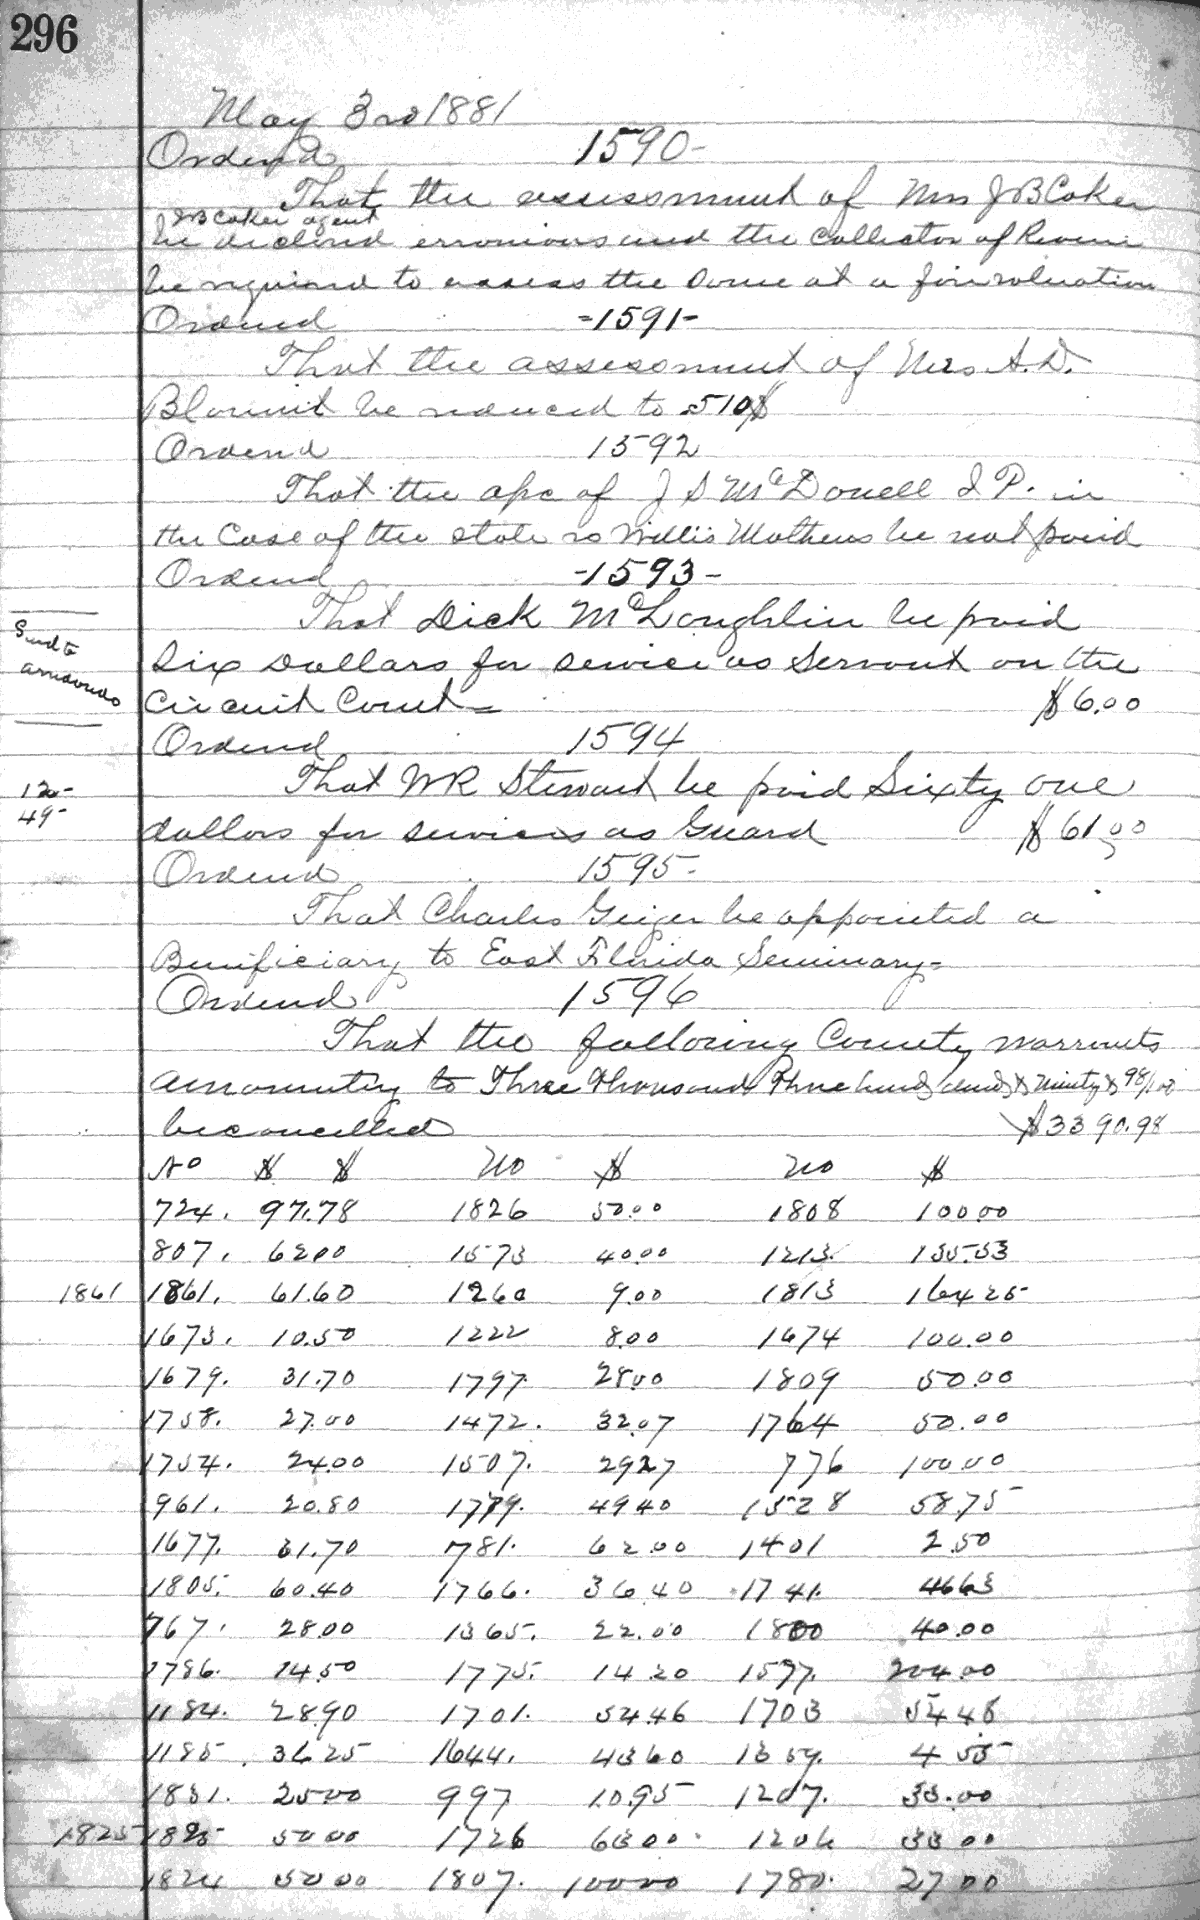 296
May 3rd 1881
Ordend 1590-
That the assessment of Mrs J B Coker
J B Coker agent
be declared erronious and the Collector of Revenue
be required to assess the same at a fair valuation
Ordend -1591-
That the assessment of Mrs A. D.
Blount be reduced to 510$
Ordend 1592
That the apc of J S McDonell J P. in
the Case of the State vs Willis Mathews be not paid
Ordend -1593-
That Dick McLoughlin be paid
Send to
Six Dollars for service as Servant on the
Circuit Court= $6.00
Ordend 1594
That W R Stewart be paid Sixty one
12-
49-
dollars for services as Guard $61.00
Ordend 1595-
That Charles Geiger be appointed a
Benificiary to East Florida Seminary=
Ordend 1596
That the following County warrents
amounting to Three Thousand Three hundred & Ninety & 98/100
be cancelled $3390.98
No $ $ No $ No $
724. 97.78 1826 50.00 1808 100.00
807. 62.00 1573 40.00 1213. 155.53
1861 1861. 61.60 1260 9.00 1813 164 25
1673. 10.50 1222 8.00 1674 100.00
1679. 31.70 1797. 28.00 1809 50.00
1758. 27.00 1472. 32.07 1764 50.00
1754. 24.00 1507. 29 27 776 100.00
961. 20.80 1779. 49 40 1528 58.75
1677. 31.70 781. 62.00 1401 2.50
1805. 60.40 1766. 36 40 1741. 46 63
767. 28.00 1365. 22.00 1800 40.00
1786. 14.50 1775. 14.20 1577. 204.00
1184. 28.90 1701. 54.46 1703 54 48
1185. 36 25 1644. 43 60 1359. 4 55
1831. 25.00 997 10.95 1207. 33.00
1825 1825 50 00 1726 63 00 1206 33 00
1824 50 00 1807. 100 00 1780. 27 00